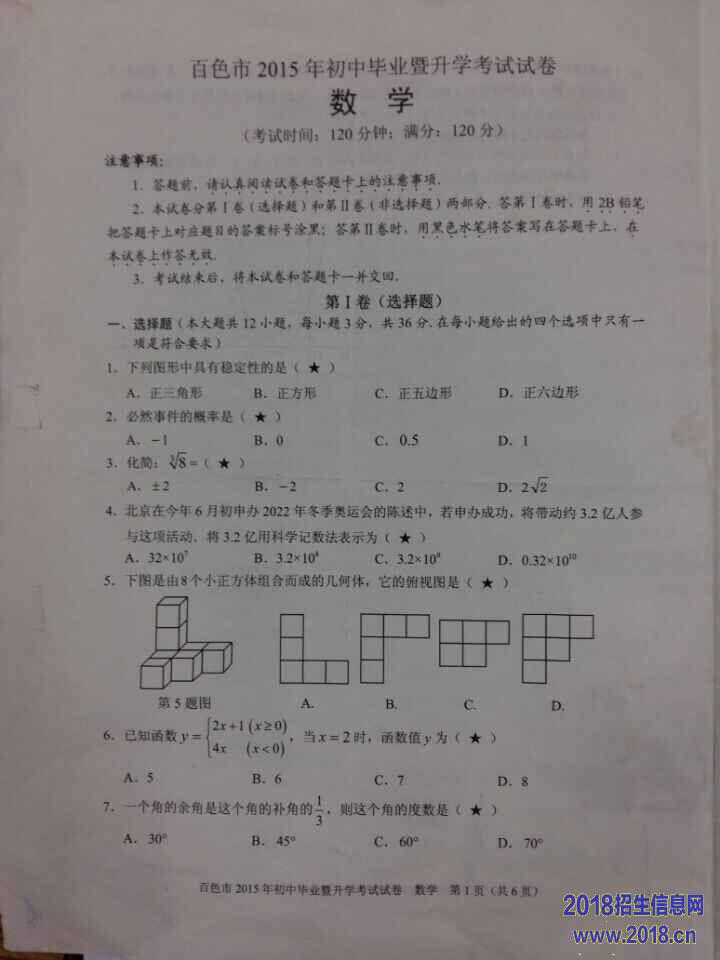 百色市 2015 年初中毕业暨升学考试试卷
数 学
(考试时间：120 分钟；满分：120 分)
注意事项：
1．答题前，请认真阅读试卷和答题卡上的注意事项．
2．本试卷分第Ⅰ卷（选择题）和第Ⅱ卷（非选择题）两部分．答第Ⅰ卷时，用 2B 铅笔
把答题卡上对应题目的答案标号涂黑；答第Ⅱ卷时，用黑色水笔将答案写在答题卡上，在
本试卷上作答无效．
3．考试结束后，将本试卷和答题卡一并交回．
第Ⅰ卷（选择题）
一、选择题（本大题共 12 小题，每小题 3 分，共 36 分．在每小题给出的四个选项中只有一
项是符合要求）
1．下列图形中具有稳定性的是（ ★ ）
A．正三角形 B．正方形 C．正五边形 D．正六边形
2．必然事件的概率是（ ★ ）
A．−1 B．0 C．0.5 D．1
3．化简：∛8 =（ ★ ）
A．±2 B．−2 C．2 D．2√2
4．北京在今年 6 月初申办 2022 年冬季奥运会的陈述中，若申办成功，将带动约 3.2 亿人参
与这项活动．将 3.2 亿用科学记数法表示为（ ★ ）
A．32×10⁷ B．3.2×10⁸ C．3.2×10⁹ D．0.32×10¹⁰
5．下图是由 8 个小正方体组合而成的几何体，它的俯视图是（ ★ ）
第 5 题图 A. B. C. D.
6．已知函数 y = { 2x+1 (x≥0)
4x (x<0) ，当 x = 2 时，函数值 y 为（ ★ ）
A．5 B．6 C．7 D．8
7．一个角的余角是这个角的补角的 1/3，则这个角的度数是（ ★ ）
A．30° B．45° C．60° D．70°
百色市 2015 年初中毕业暨升学考试试卷 数学 第 1 页（共 6 页）
2018招生信息网
www.2018.cn